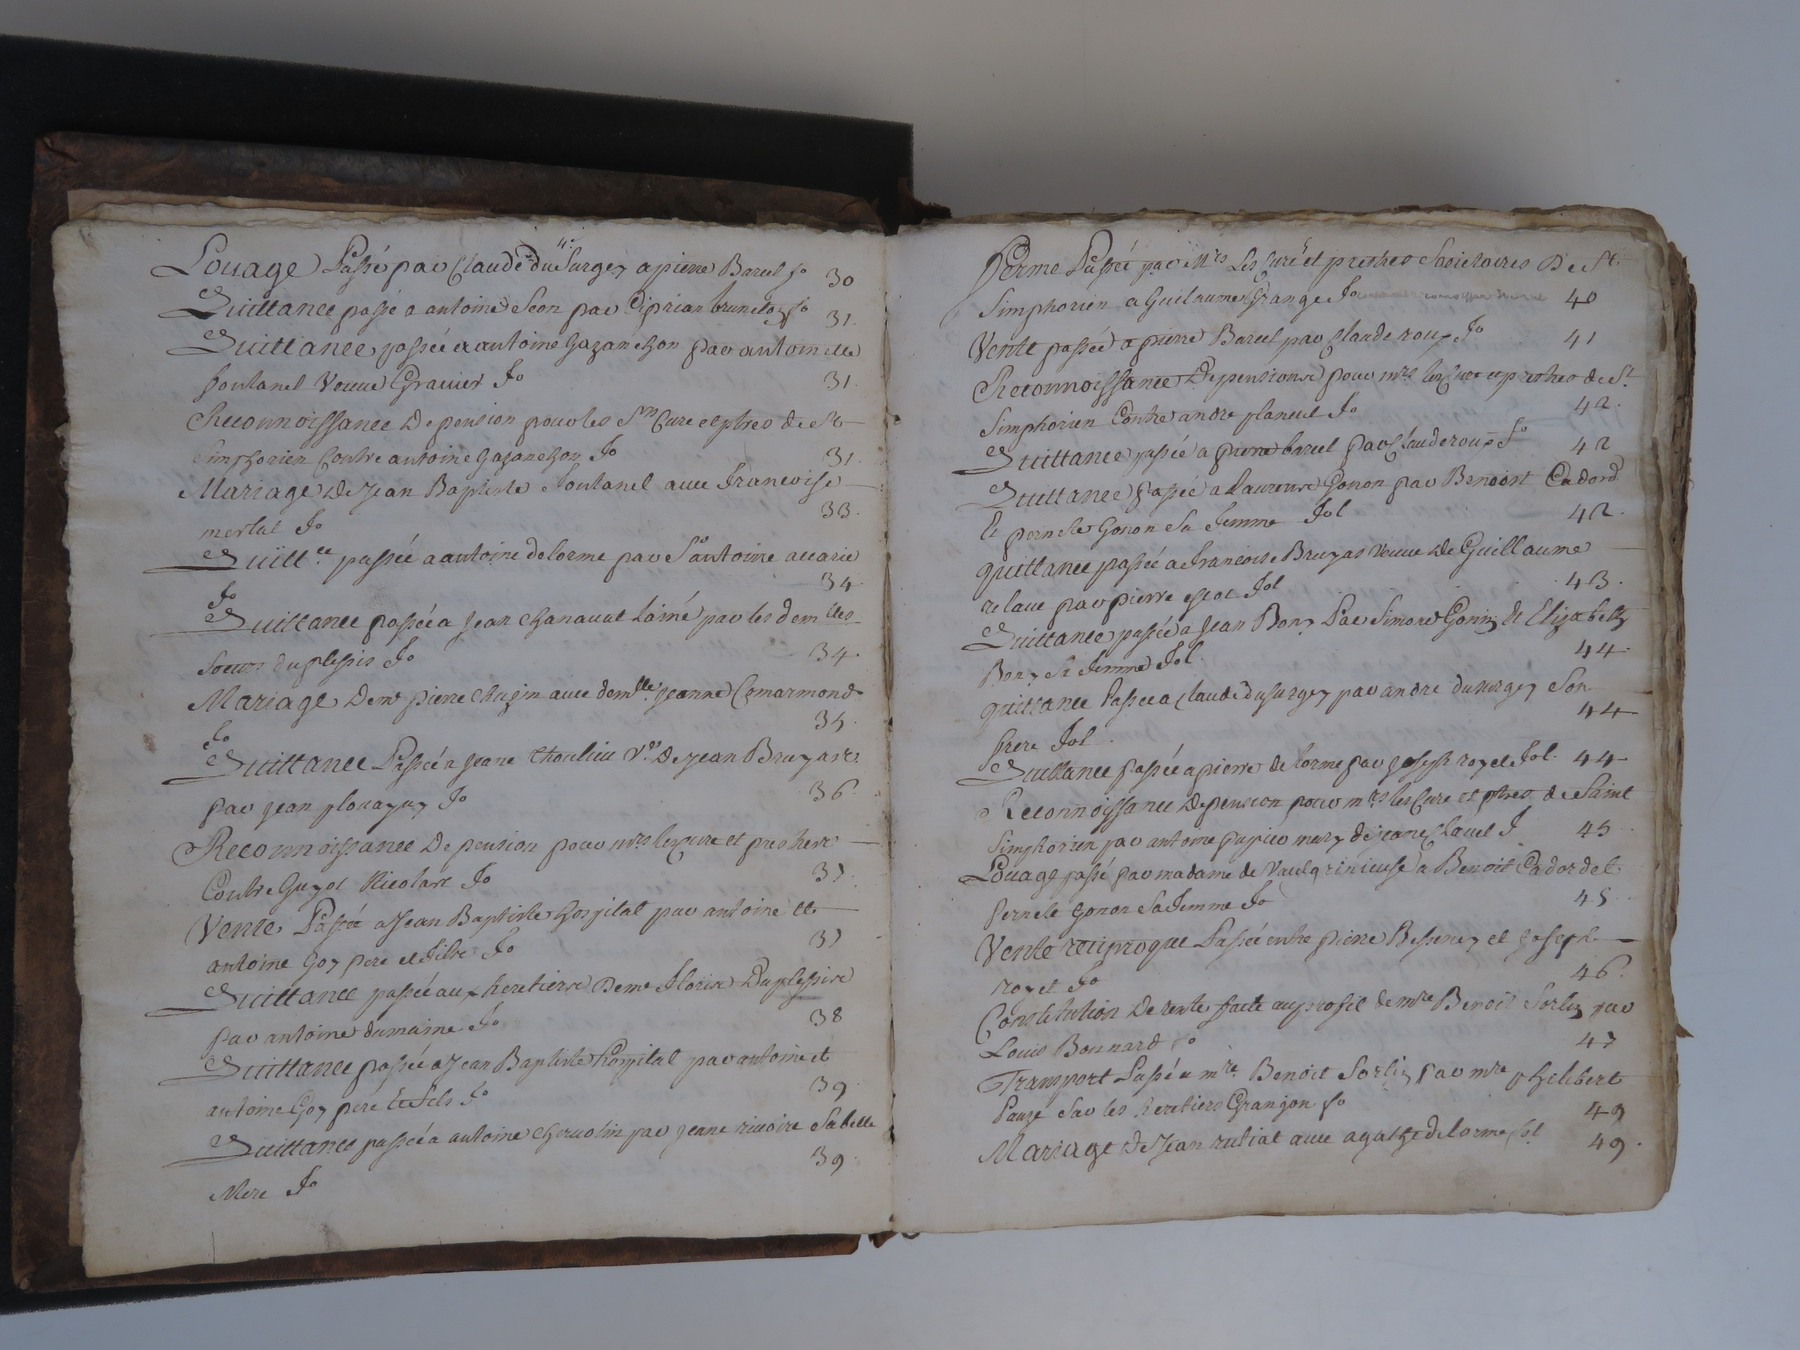 Louage Passé par Claude du Surgey a pierre Barcel fo 30
Quittance passé a antoine Seon par Ciprian bruneton fo 31.
Quittance passée a antoine Gazanchon par antoinette
fontanel Veuve Gravier fo 31.
Reconnoissance De pension pour les Srs Curé et ptres de St
Simphorien Contre antoine Gazanchon fo 31.
Mariage De Jean Baptiste fontanel avec francoise
fo 33.
Quittce passée a antoine delorme par Sr antoine accarie
fo 34.
Quittance passée a Jean Chanavat Lainé par les demlles
Soeurs duplessis fo 34.
Mariage De mr pierre avec demlle Jeanne Comarmond
fo 35.
Quittance Passée a Jeane Thoulieu Ve De Jean Bruyas
par Jean fo 36.
Reconnoissance De pension pour mrs les cure et prestres
Contre Guyot Nicolas fo 37.
Vente Passée a Jean Baptiste hospital par antoine et
antoine Goy pere et filse fo 37
Quittance passée aux heretiers De mr floris Duplessis
par antoine dumaine fo 38
Quittance passée a Jean Baptiste hospital par antoine et
antoine Goy pere et fils fo 39.
Quittance passée a antoine par Jeane rivoire Sa belle
Mere fo 39.
ferme Passée par Mrs Les Curé et prestres Societaires De St.
Simphorien a Guillaume Grange fo 40
Vente passée a pierre Barcel par Claude roux fo 41
Reconnoissance De pensions pour mrs les Cure et prestres de St.
Simphorien Contre andre planeul fo 42.
Quittance passée a pierre barcel par Claude roux fo 42
Quittance passée a Laurens Gonon par Benoist Cadord
Et pernete Gonon Sa femme fol 42.
quittance passée a francoise Bruyas Veuve De Guillaume
relave par pierre escot fol 43.
Quittance passée a Jean Bony Par Simon Gonin Et Elizabeth
Bony Sa femme fol. 44.
quittance Passée a Claude dusurgey par andre dusurgey Son
frere fol. 44
Quittance passée a pierre delorme par Joseph royet fol. 44
Reconnoissance De pension pour mrs les Cure et ptres de Saint
Simphorien par antoine mary de Jeane Clavel f 45
Louage passé par madame de Vaulgrinieuse a Benoit Cadord et
Pernete Gonon Sa femme fo 45
Vente reciproque Passée entre pierre Bessenay et Joseph
royet fo 46.
Constitution De rente faite au profit de mre Benoit Sorlin par
Louis Bonnard fo 47
Transport Passé a mre. Benoit Sorlin par mre philibert
Pauze Sur les heretiers Grangon fo 49
Mariage De Jean avec agathe delorme fol 49.